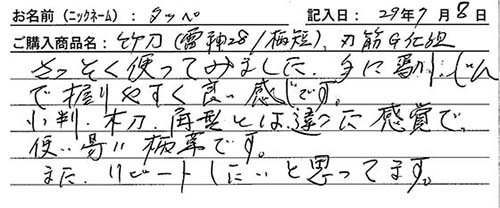 お名前（ニックネーム）：タッペ 記入日：29年7月8日
ご購入商品名：竹刀（雷神28/柄短）、刃筋G仕組
さっそく使ってみました。手に馴り
で握りやすく良い感じです。
小判、木刀、角型とは違った感覚で、
使い易い柄革です。
また、リピートしたいと思ってます。